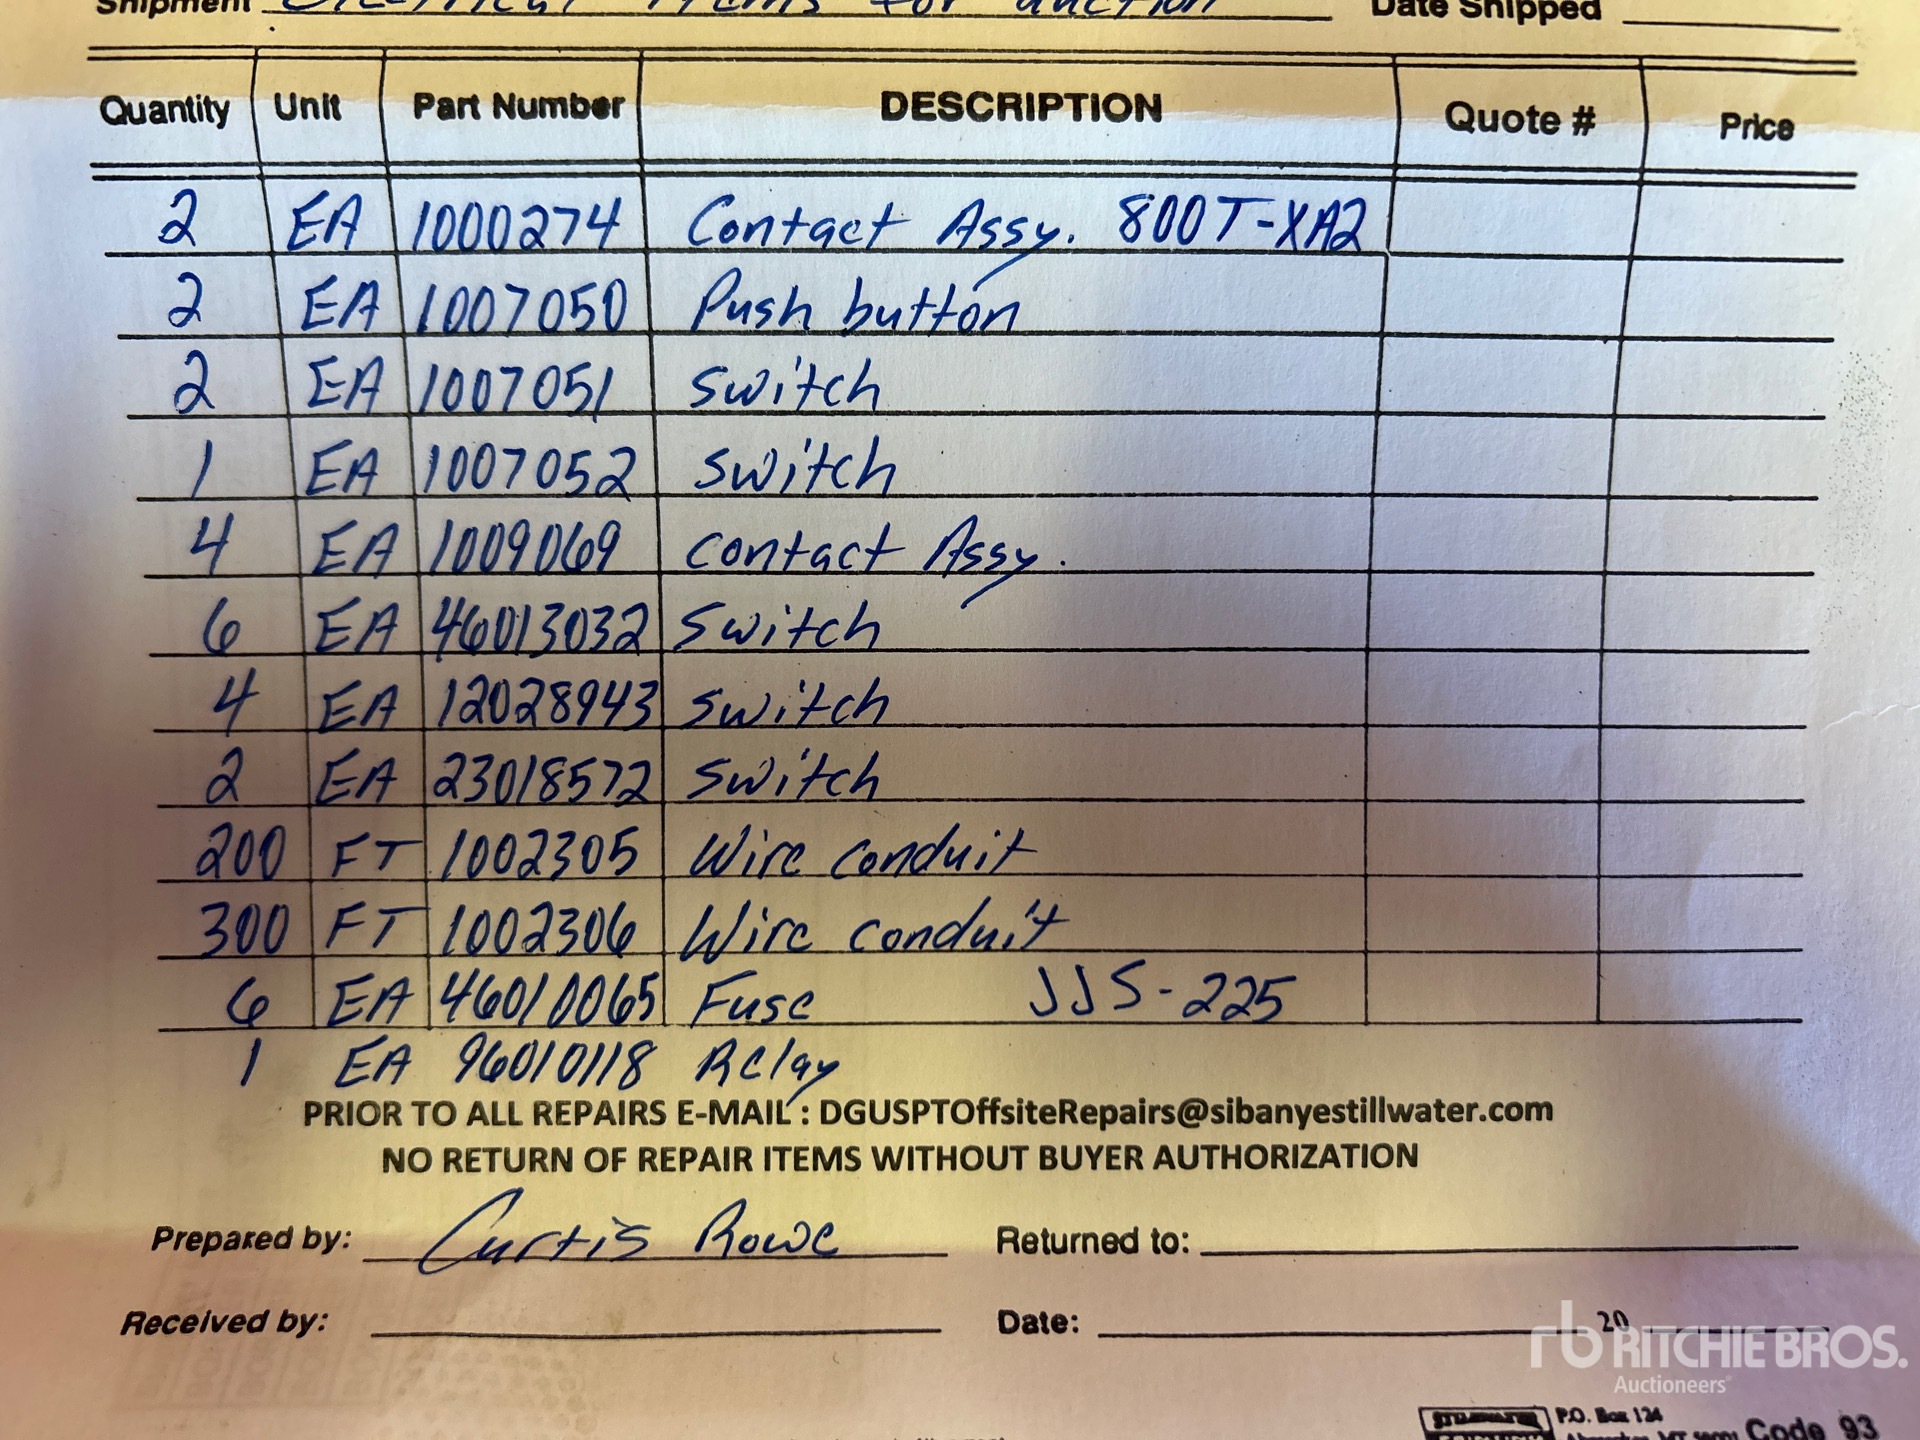 Shipment Electrical Items for auction Date Shipped
Quantity Unit Part Number DESCRIPTION Quote # Price
2 EA 1000274 Contact Assy. 800T-XA2
2 EA 1007050 Push button
2 EA 1007051 Switch
1 EA 1007052 Switch
4 EA 1009069 Contact Assy.
6 EA 46013032 Switch
4 EA 12028943 Switch
2 EA 23018572 Switch
200 FT 1002305 Wire conduit
300 FT 1002306 Wire conduit
6 EA 46010065 Fuse JJS-225
1 EA 96010118 Relay
PRIOR TO ALL REPAIRS E-MAIL : DGUSPTOffsiteRepairs@sibanyestillwater.com
NO RETURN OF REPAIR ITEMS WITHOUT BUYER AUTHORIZATION
Prepared by: Curtis Rowe Returned to:
Received by: Date: 20
rb RITCHIE BROS.
Auctioneers
STILLWATER P.O. Box 124
Code 93